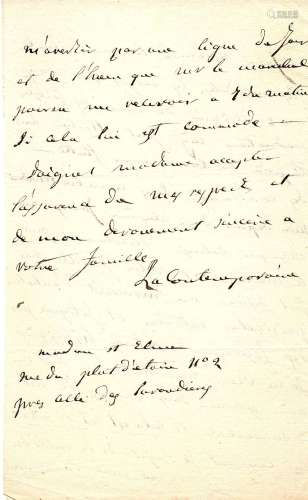 m'avertir par une ligne du jour
et de l'heure que mr le marechal
pourra me recevoir a 7 du matin
Si cela lui est commode —
Daignez madame accepter
l'assurance du mes respect et
de mon devouement sincère a
votre famille
La Contemporaine
madame St Elme
rue du plat d'etain No 2
près celle des Lavandières